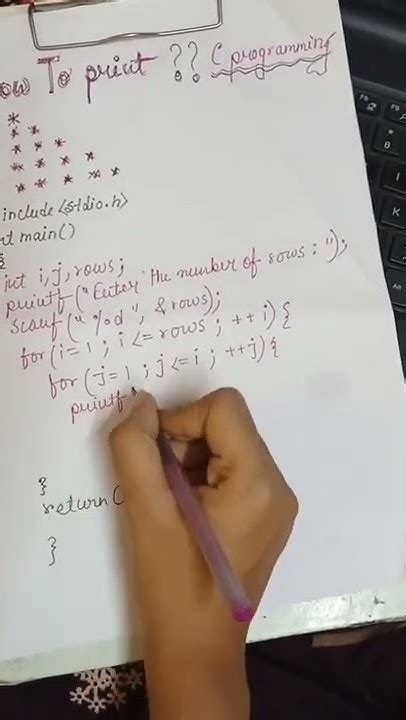 To print ?? C programming
*
* *
* * *
* * * *
* * * * *
include <stdio.h>
main()
int i,j,rows;
printf("Enter the number of rows: ");
scanf("%d", &rows);
for(i=1; i<=rows; ++i){
for(j=1; j<=i; ++j){
printf
}
return(
}